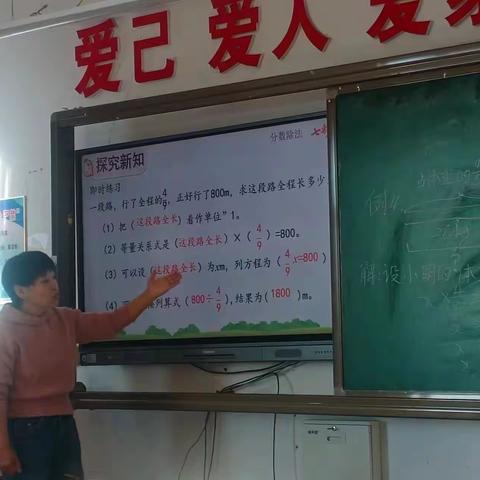 爱己 爱人 爱
分数除法
探究新知
即时练习
一段路，行了全程的4/9，正好行了800m，求这段路全程长多少
(1) 把（这段路全长）看作单位"1。
(2) 等量关系式是（这段路全长）×（4/9）=800。
(3) 可以设（这段路全长）为xm，列方程为（4/9x=800）
(4) 列算式（800÷4/9），结果为（1800）m。
解：设小明的体